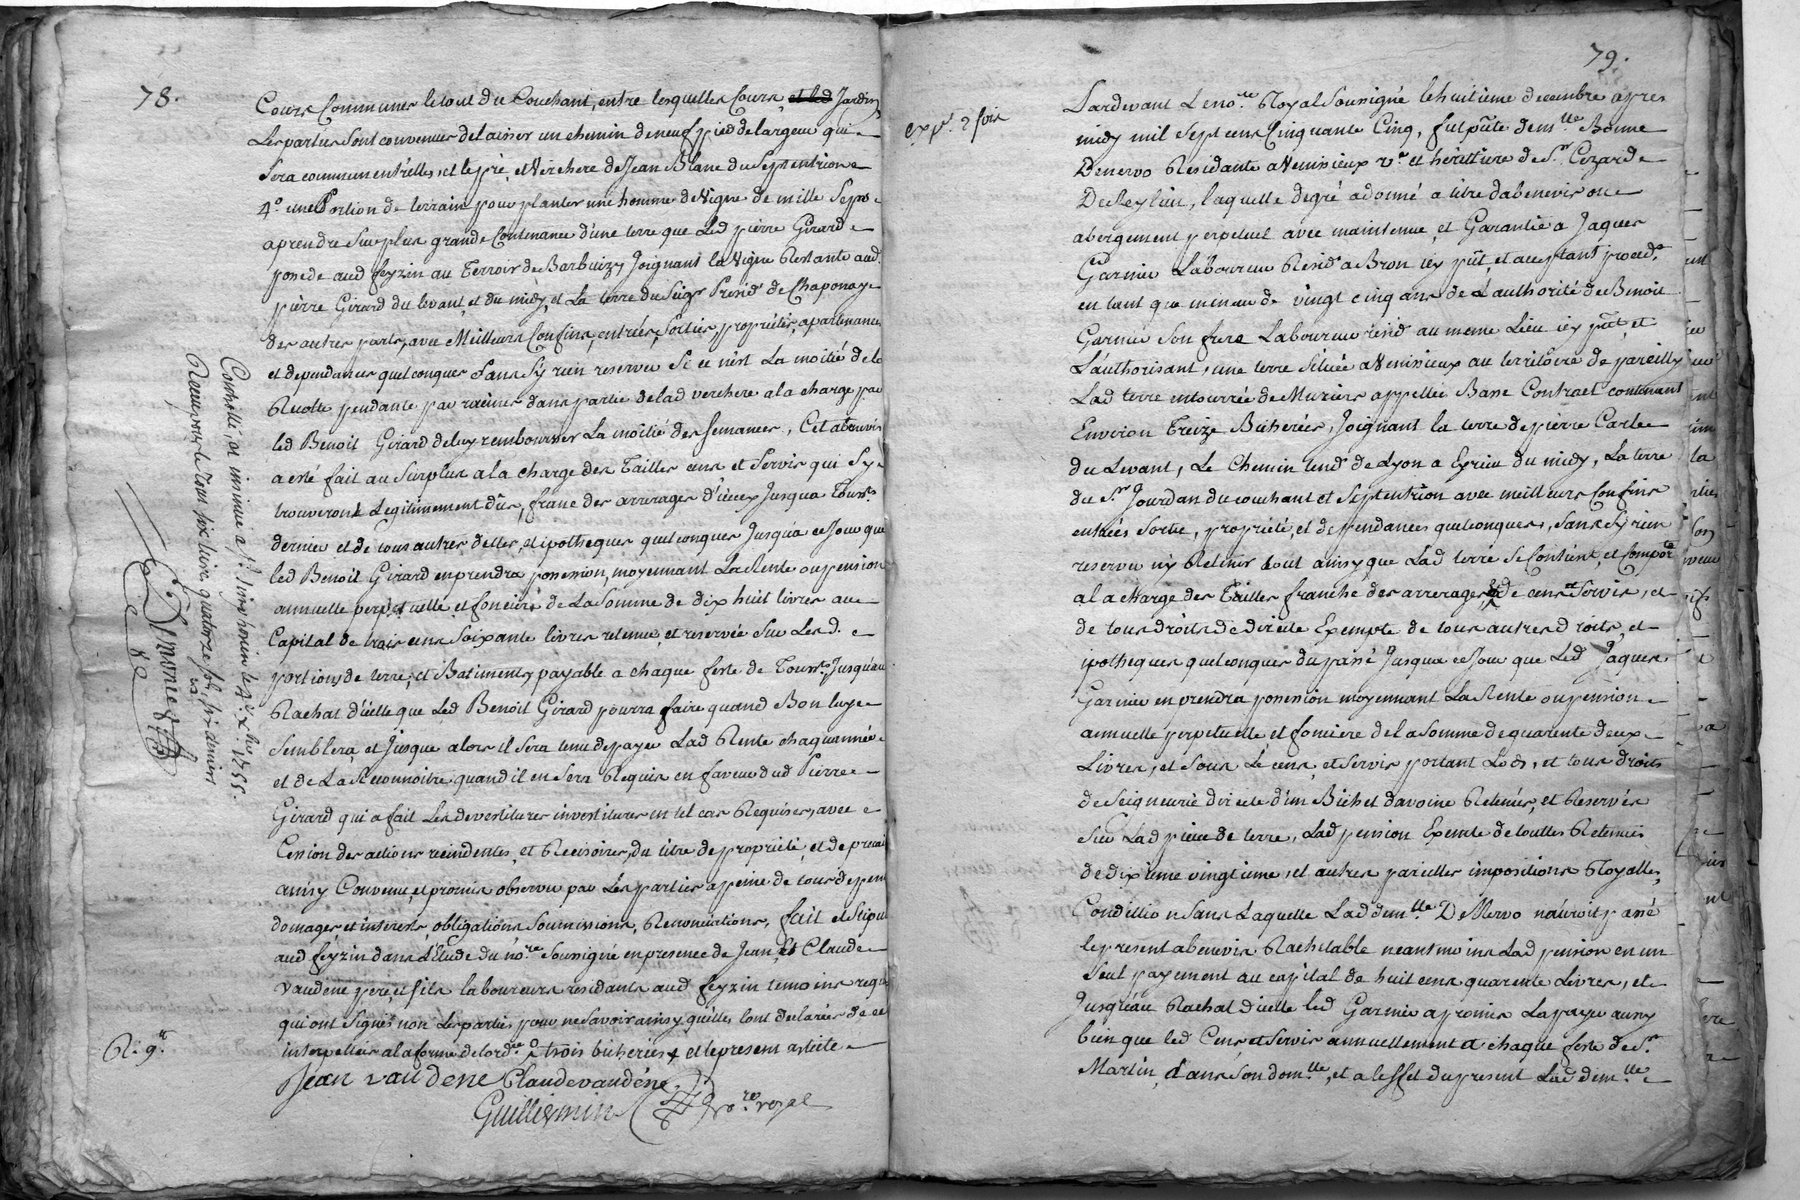 78.
Cours Communes le tout du Couchant, entre lesquelles Cours, et led Jardin,
Les parties sont convenues de laisser un chemin de neuf pied de largeur qui
sera commun entr'elles, et le pré, et Verchere de Jean Blanc du Septentrion
4° une Portion de terrain pour planter une homme de Vigne de mille seps
a prendre sur plus grande Contenance d'une terre que Led pierre Girard
possede aud feyzin au Terroir de Barbuizy Joignant la Vigne Restante aud.
pierre Girard du levant, et du midy, et La terre du Seigr Presid' de Chaponay
des autres parts, avec Meilleurs Confins, entrées, sorties, proprietés, apartenances
et dependances quelconques sans sy rien reserver si ce n'est La moitié de la
Recolte pendante par racines dans partie de lad verchere a la charge par
led Benoit Girard de luy rembourser La moitié des semances, Cet abenevis
a esté fait au surplus a la charge des Tailles cens et servis qui sy
trouveront Legitimement dûs, franc des arrerages d'iceux Jusqu'a Touss.ts
dernier et de tous autres dettes, et ipotheques quelconques Jusqua ce Jour que
led Benoit Girard en prendra possession, moyennant La Rente ou pension
annuelle perpetuelle et fonciere de La Somme de dix huit livres au
Capital de trois cens soixante livres retenue, et reservée sur Les d.
portions de terre, et Batiments, payable a chaque feste de Touss.ts Jusqu'au
Rachat d'icelle que Led Benoit Girard pourra faire quand Bon luy
semblera, et Jusque alors il sera tenu de payer Lad Rente chaqu'année
et de La Reconnoitre quand il en sera Requis en faveur dud Pierre
Girard qui a fait Les devestitures investitures en tel cas Requises, avec
Cession des actions rescindentes, et Recisoires, du titre de proprieté, et de precaire
ainsy Convenu, et promis observer par Les parties a peine de tous depens
domages et interests obligations soumissions, Renonciations, fait et stipulé
aud feyzin dans L'Etude du no.re Soussigné en presence de Jean, Et Claude
vaudene pere, et fils laboureurs residants aud feyzin temoins requis
qui ont signés non Les parties pour ne savoir ainsy qu'elles l'ont declarés de ce
interpellés a la forme de l'ord.ce trois bicherées et le present article
Jean vaudene Claudevaudéne
Guillermin no.re royal
R. 9.t
Controllé, et insinué a St Simphorien le 7.e xbre 1755.
Recu pour le tout six livres quatorze sols six deniers
79.
exp.é 2 fois
Pardevant Le no.re Royal Sousigné le huitieme decembre apres
midy mil sept cens Cinquante Cinq, fut p̃nte dem.lle Bonne
Denervo Residante a Venissieux v.e et héritiere de S.r Cezar de
De Reylieu, laquelle de gré a donné a titre d'abenevis ou
abergement perpetuel avec maintenue, et Garantie a Jaques
Garnier Laboureur Resid.t a Bron icy p̃nt, et acceptant proced.t
en tant que mineur de vingt cinq ans de L'authorité de Benoit
Garnier Son frere Laboureur resid.t au meme Lieu icy p̃nt, et
L'authorisant, une terre Située a Venissieux au territoire de pareilly
Lad terre entourrée de Muriers appellée Bane Contract contenant
Environ Treize Bicherées, Joignant la terre de pierre Carle
du Levant, Le Chemin tend.t de Lyon a Eyrieu du midy, La terre
du S.r Jourdan du couchant et Septentrion avec meilleurs Confins
entrées sortie, proprieté, et dependances quelconques, sans sy rien
reserver ny Retenir tout ainsy que Lad terre se Contient, et Comporte
a la charge des Tailles franche des arrerages de cens et Servis, et
de tous droits de directe Exempte de tous autres droits, et
ipotheques quelconques du passé Jusqua ce Jour que Led Jaques
Garnier en prendra possession moyennant La Rente ou pension
annuelle perpetuelle et fonciere de la somme de quarente deux
Livres, et sous Le cens, et Servis portant Lods, et tous droits
de Seigneurie directe d'un Bichet d'avoine Retenus, et Reservés
sur Lad piece de terre, Lad pension Exemte de touttes Retenues
de dixieme vingtieme, et autres pareilles impositions Royalles,
Condition sans Laquelle Lad dem.lle De Nervo n'auroit passé
le present abenevis Rachetable neantmoins Lad pension en un
seul payement au capital de huit cens quarente Livres, et
Jusqu'au Rachat d'icelle led Garnier a promis La payer aussy
bien que led Cens, et Servis annuellement a chaque feste de S.t
Martin, dans son dom.lle, et a l'effet du present Lad dem.lle